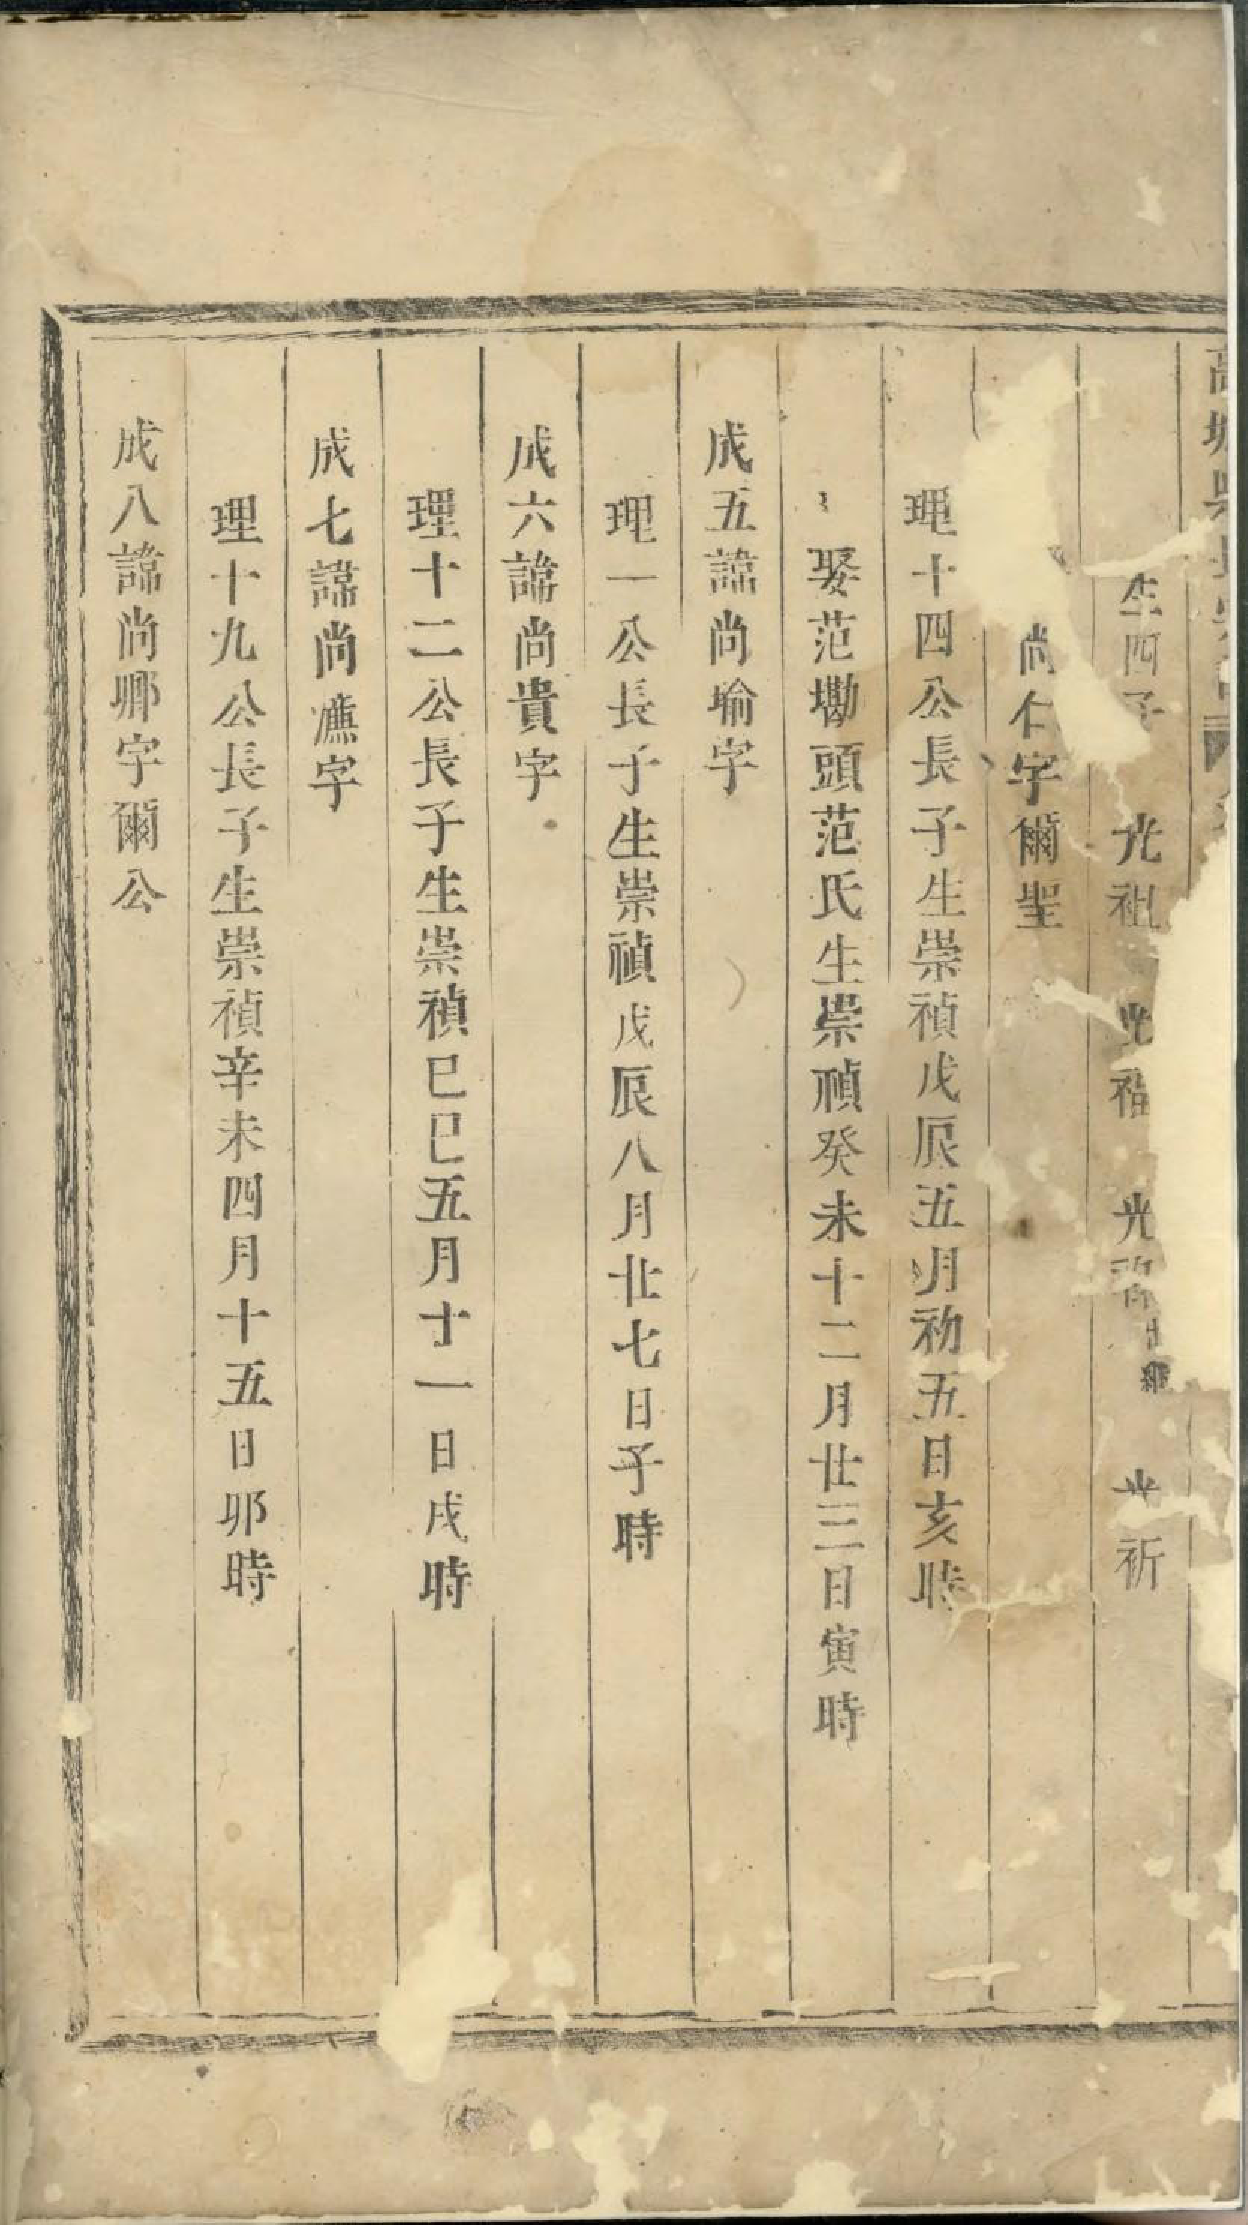 生四子 光祖 光福 光啓出繼 光祈
尚仁字爾聖
理十四公長子生崇禎戊辰五月初五日亥時
娶范墈頭范氏生崇禎癸未十二月廿三日寅時
成五諱尚瑜字
理一公長子生崇禎戊辰八月廿七日子時
成六諱尚貴字
理十二公長子生崇禎己巳五月十一日戌時
成七諱尚爊字
理十九公長子生崇禎辛未四月十五日卯時
成八諱尚卿字爾公